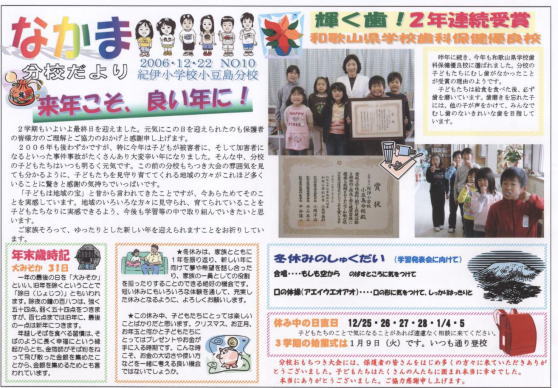 なかま
分校だより
2006・12・22 NO10
紀伊小学校小豆島分校
来年こそ、良い年に！
２学期もいよいよ最終日を迎えました。元気にこの日を迎えられたのも保護者
の皆様方のご理解とご協力のおかげと感謝申し上げます。
２００６年も後わずかですが、特に今年は子どもが被害者に、そして加害者に
なるといった事件事故がたくさんあり大変辛い年になりました。そんな中、分校
の子どもたちはいつも明るく元気です。この前の分校もちつき大会の雰囲気を見
ても分かるように、子どもたちを見守り育ててくれる地域の方々がこれほど多く
いることに驚きと感謝の気持ちでいっぱいです。
「子どもは地域の宝」と昔から言われてきたことですが、今あらためてそのこ
とを実感しています。地域のいろいろな方々に見守られ、育てられていることを
子どもたちなりに実感できるよう、今後も学習等の中で取り組んでいきたいと思
います。
ご家族そろって、ゆったりとした新しい年を迎えられますことをお祈りしてい
ます。
輝く歯！２年連続受賞
和歌山県学校歯科保健優良校
昨年に続き、今年も和歌山県学校歯
科保健優良校に選ばれました。分校の
子どもたちにむし歯がなかったこと
が受賞の理由のようです。
子どもたちは給食を食べた後、必ず
歯を磨いています。歯磨きを忘れた子
には、他の子が声をかけて、みんなで
むし歯のないきれいな歯を目指して
います。
賞状
年末歳時記
大みそか 31日
一年の最後の日を「大みそか」
といい、旧年を除くということで
「除日（じょじつ）」ともいわれ
ます。除夜の鐘の百八つは、強く
五十四点、弱く五十四点をつきま
すが、百七点までは旧年に、最後
の一点は新年につきます。
年越しそばを食べる習慣は、そ
ばのように長く幸福にという縁
起からとも、金箔師がそば粉をね
って飛び散った金銀を集めたこ
とから、金銀を集めるためとも言
われています。
★冬休みは、家族とともに
１年を振り返り、新しい年に
向けて夢や希望を話し合った
り、家族の一員としての役割
を担ったりすることのできる絶好の機会です。
短い休みにもいろいろな体験を通して、充実し
た休みとなるように、よろしくお願いします。
★この休み中、子どもたちにとっては楽しい
ことばかりだと思います。クリスマス、お正月、
お年玉と宿かと子どもたちに
とってはプレゼントやお金が
手に入る時期です。こんな時
こそ、お金の大切さや使い方
などを一緒に考える良い機会
ではないでしょうか。
冬休みのしゅくだい （学習発表会に向けて）
合唱・・・・もしも空から のばすところに気をつけて
口の体操（アエイウエオアオ）・・・・口の形に気をつけて、しっかりはっきりと
休み中の日直日 12/25・26・27・28・1/4・5
子どもたちのことで気になることがあれば遠慮なく相談に来てください。
３学期の始業式は１月９日（火）です。いつも通り登校
分校おもちつき大会には、保護者の皆さんをはじめ多くの方々に来ていただきありが
とうございました。子どもたちはたくさんの人たちに囲まれ本当に幸せでした。
本当にありがとうございました。ご協力感謝申し上げます。